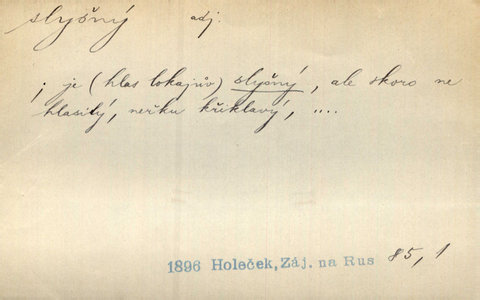 slyšný adj.
; je (hlas lokajův) slyšný, ale skoro ne
hlasitý, neřku křiklavý, ....
1896 Holeček, Záj. na Rus 85, 1